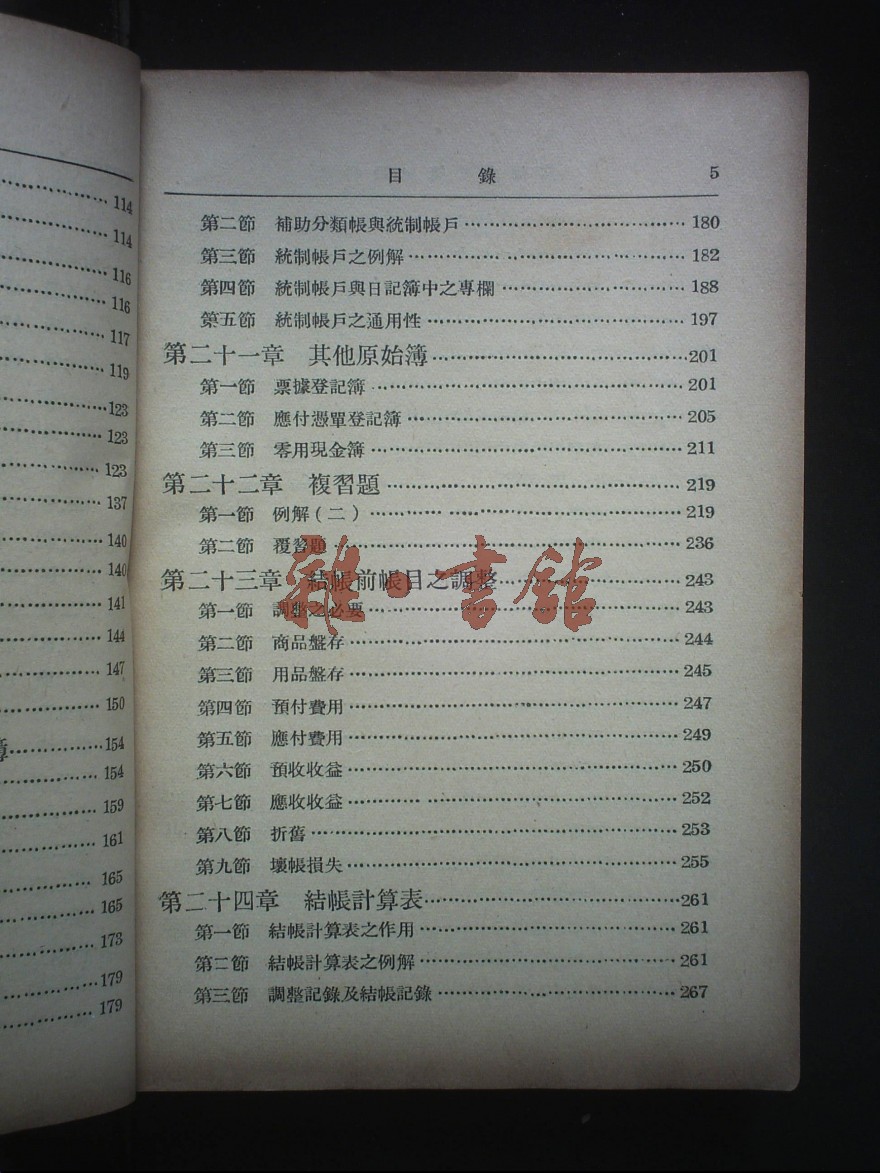 114
114
116
116
117
119
123
123
123
137
140
140
141
144
147
150
154
154
159
161
165
165
173
179
179
目 錄 5
第二節 補助分類帳與統制帳戶 180
第三節 統制帳戶之例解 182
第四節 統制帳戶與日記簿中之專欄 188
第五節 統制帳戶之通用性 197
第二十一章 其他原始簿 201
第一節 票據登記簿 201
第二節 應付憑單登記簿 205
第三節 零用現金簿 211
第二十二章 複習題 219
第一節 例解(二) 219
第二節 覆習題 236
第二十三章 結帳前帳目之調整 243
第一節 調整之必要 243
第二節 商品盤存 244
第三節 用品盤存 245
第四節 預付費用 247
第五節 應付費用 249
第六節 預收收益 250
第七節 應收收益 252
第八節 折舊 253
第九節 壞帳損失 255
第二十四章 結帳計算表 261
第一節 結帳計算表之作用 261
第二節 結帳計算表之例解 261
第三節 調整記錄及結帳記錄 267
雜·書館